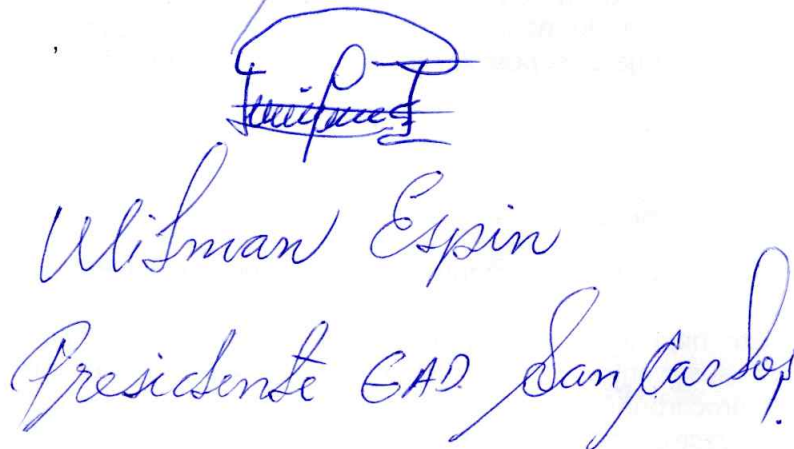 Wilman Espin
Presidente GAD San Carlos.